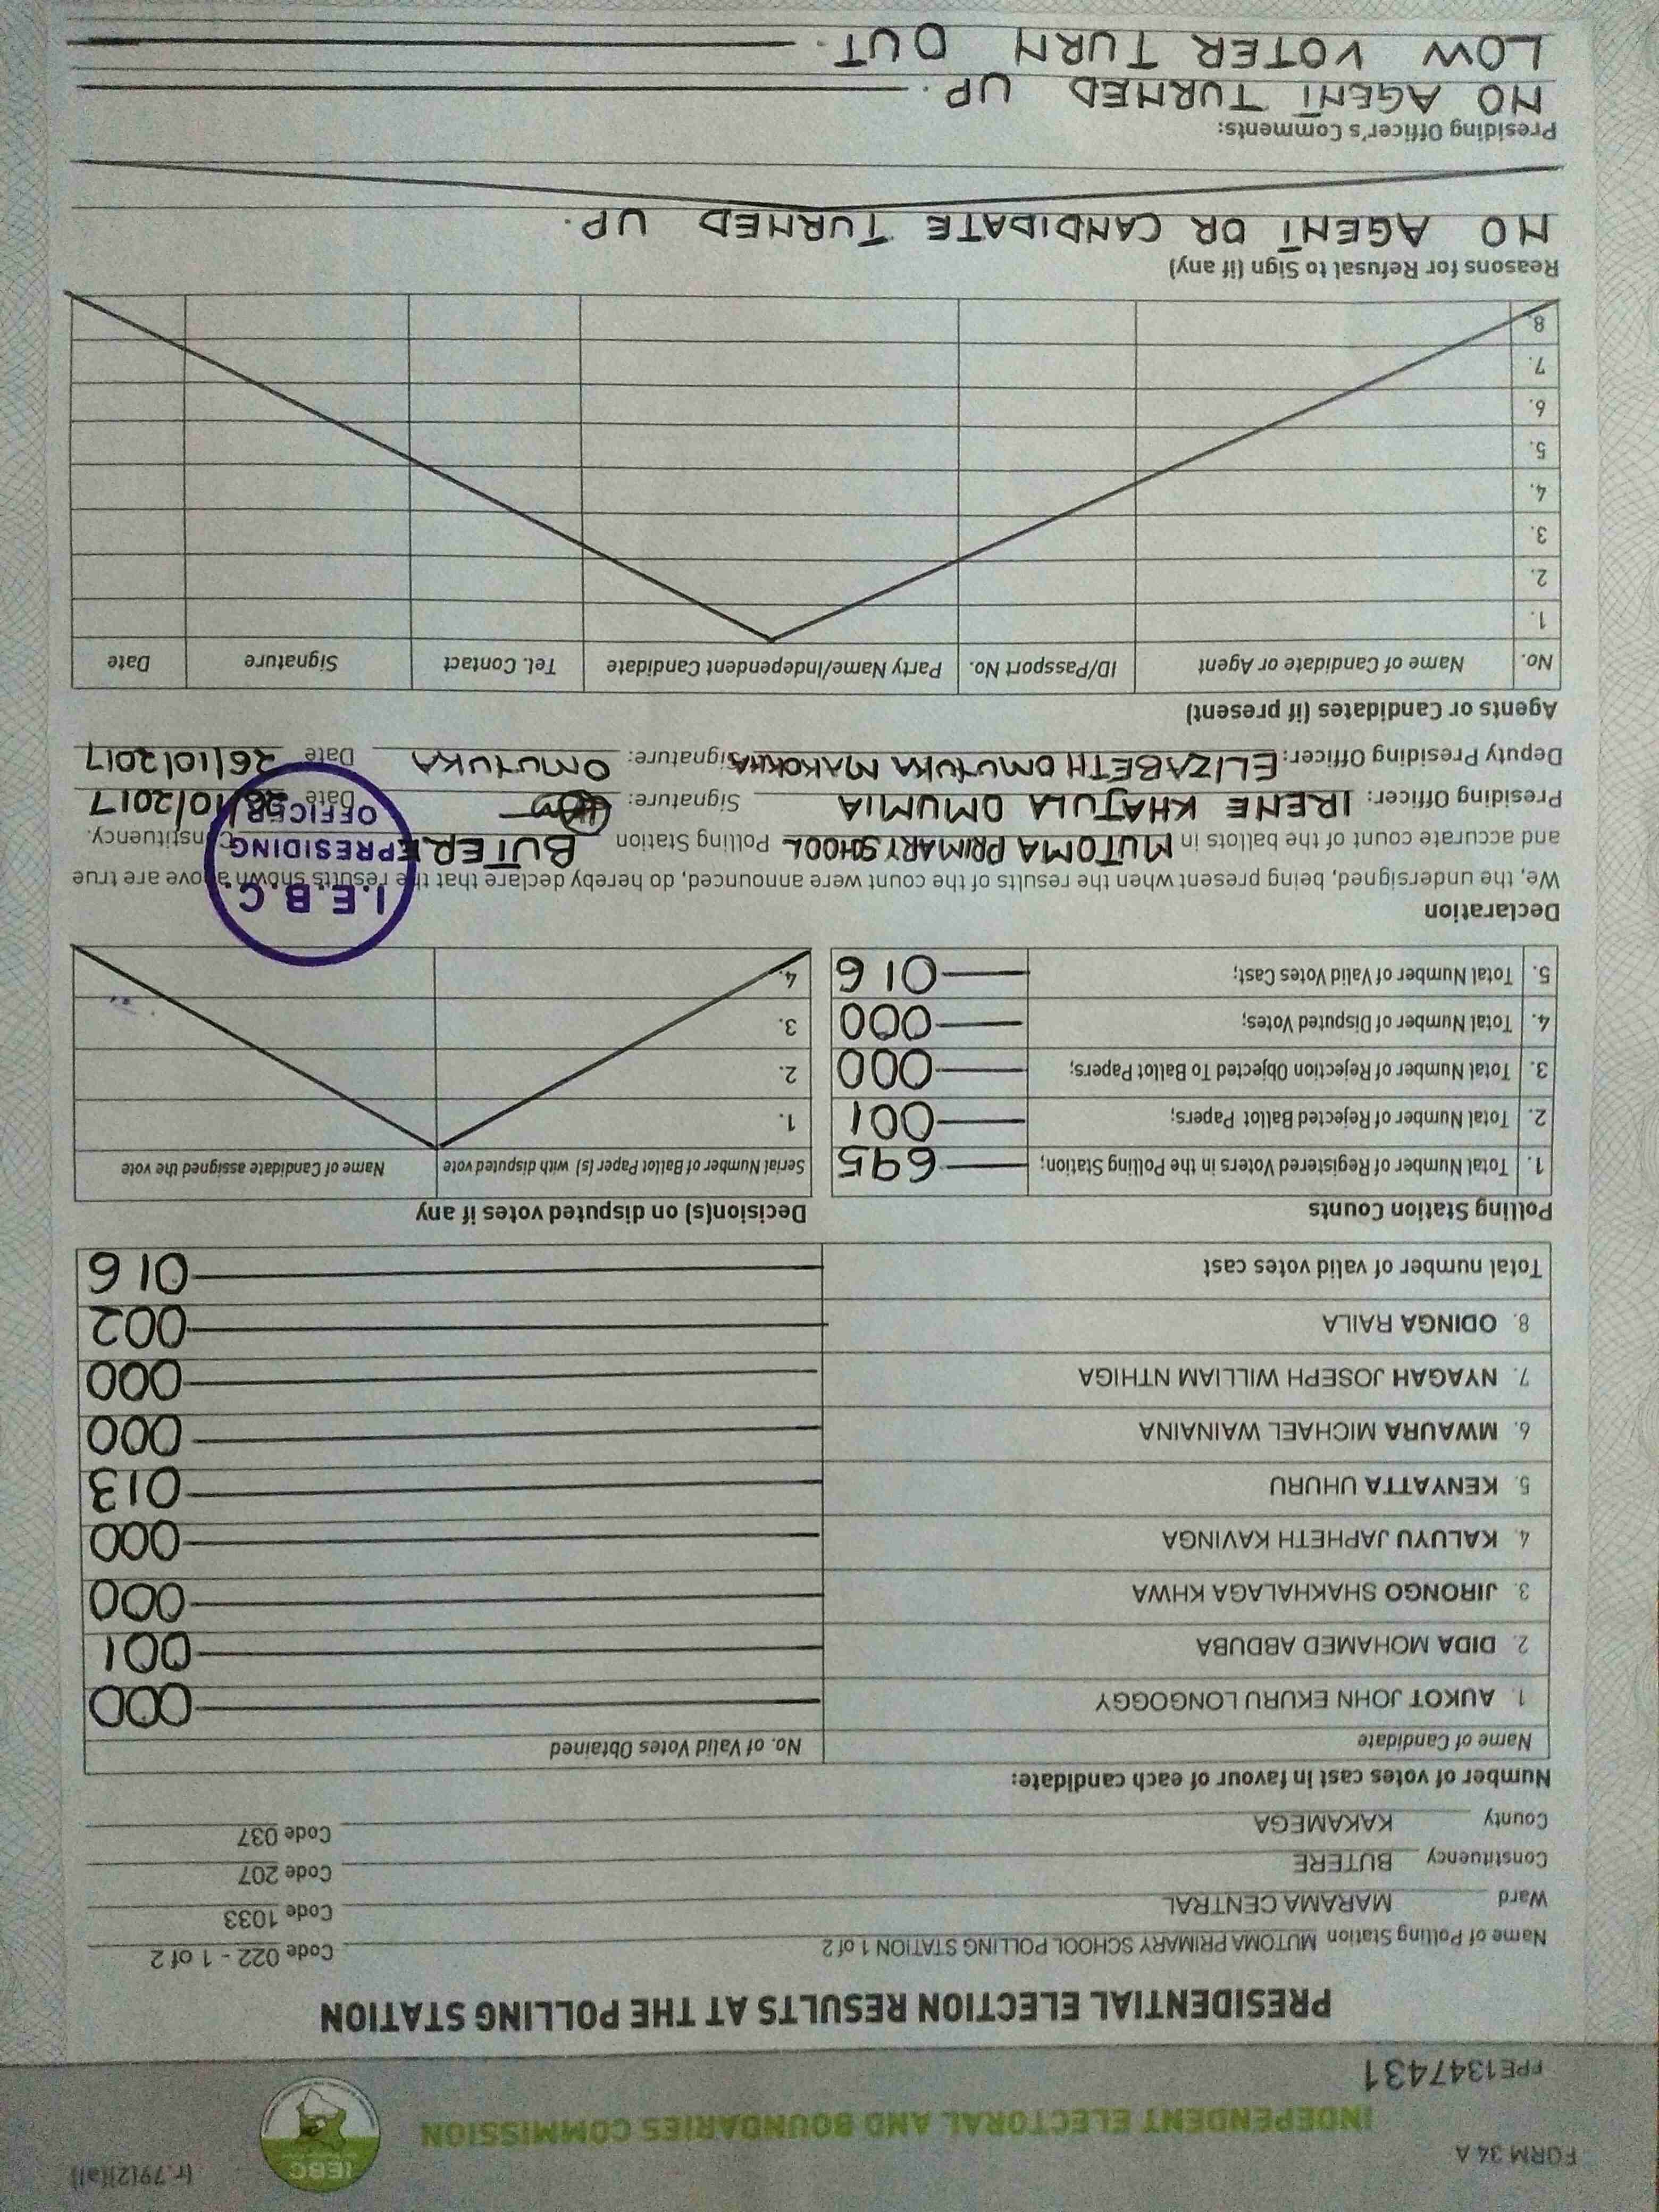 FORM 34 A
(r.79(2)(a))
IEBC
INDEPENDENT ELECTORAL AND BOUNDARIES COMMISSION
PPE1347431
PRESIDENTIAL ELECTION RESULTS AT THE POLLING STATION
Name of Polling Station MUTOMA PRIMARY SCHOOL POLLING STATION 1 of 2 Code 022 - 1 of 2
Ward MARAMA CENTRAL Code 1033
Constituency BUTERE Code 207
County KAKAMEGA Code 037
Number of votes cast in favour of each candidate:
Name of Candidate No. of Valid Votes Obtained
1. AUKOT JOHN EKURU LONGOGGY 000
2. DIDA MOHAMED ABDUBA 001
3. JIRONGO SHAKHALAGA KHWA 000
4. KALUYU JAPHETH KAVINGA 000
5. KENYATTA UHURU 013
6. MWAURA MICHAEL WAINAINA 000
7. NYAGAH JOSEPH WILLIAM NTHIGA 000
8. ODINGA RAILA 002
Total number of valid votes cast 016
Polling Station Counts
1. Total Number of Registered Voters in the Polling Station; 695
2. Total Number of Rejected Ballot Papers; 001
3. Total Number of Rejection Objected To Ballot Papers; 000
4. Total Number of Disputed Votes; 000
5. Total Number of Valid Votes Cast; 016
Decision(s) on disputed votes if any
Serial Number of Ballot Paper (s) with disputed vote Name of Candidate assigned the vote
1.
2.
3.
4.
Declaration
We, the undersigned, being present when the results of the count were announced, do hereby declare that the results shown above are true
and accurate count of the ballots in MUTOMA PRIMARY SCHOOL Polling Station BUTERE Constituency.
Presiding Officer: IRENE KHATULA OMUMIA Signature: Date 26/10/2017
Deputy Presiding Officer: ELIZABETH OMUTUKA MAKOKHA Signature: OMUTUKA Date 26/10/2017
I.E.B.C.
PRESIDING
OFFICER
Agents or Candidates (if present)
No. Name of Candidate or Agent ID/Passport No. Party Name/Independent Candidate Tel. Contact Signature Date
1.
2.
3.
4.
5.
6.
7.
8.
Reasons for Refusal to Sign (if any)
NO AGENT OR CANDIDATE TURNED UP.
Presiding Officer's Comments:
NO AGENT TURNED UP.
LOW VOTER TURN OUT.